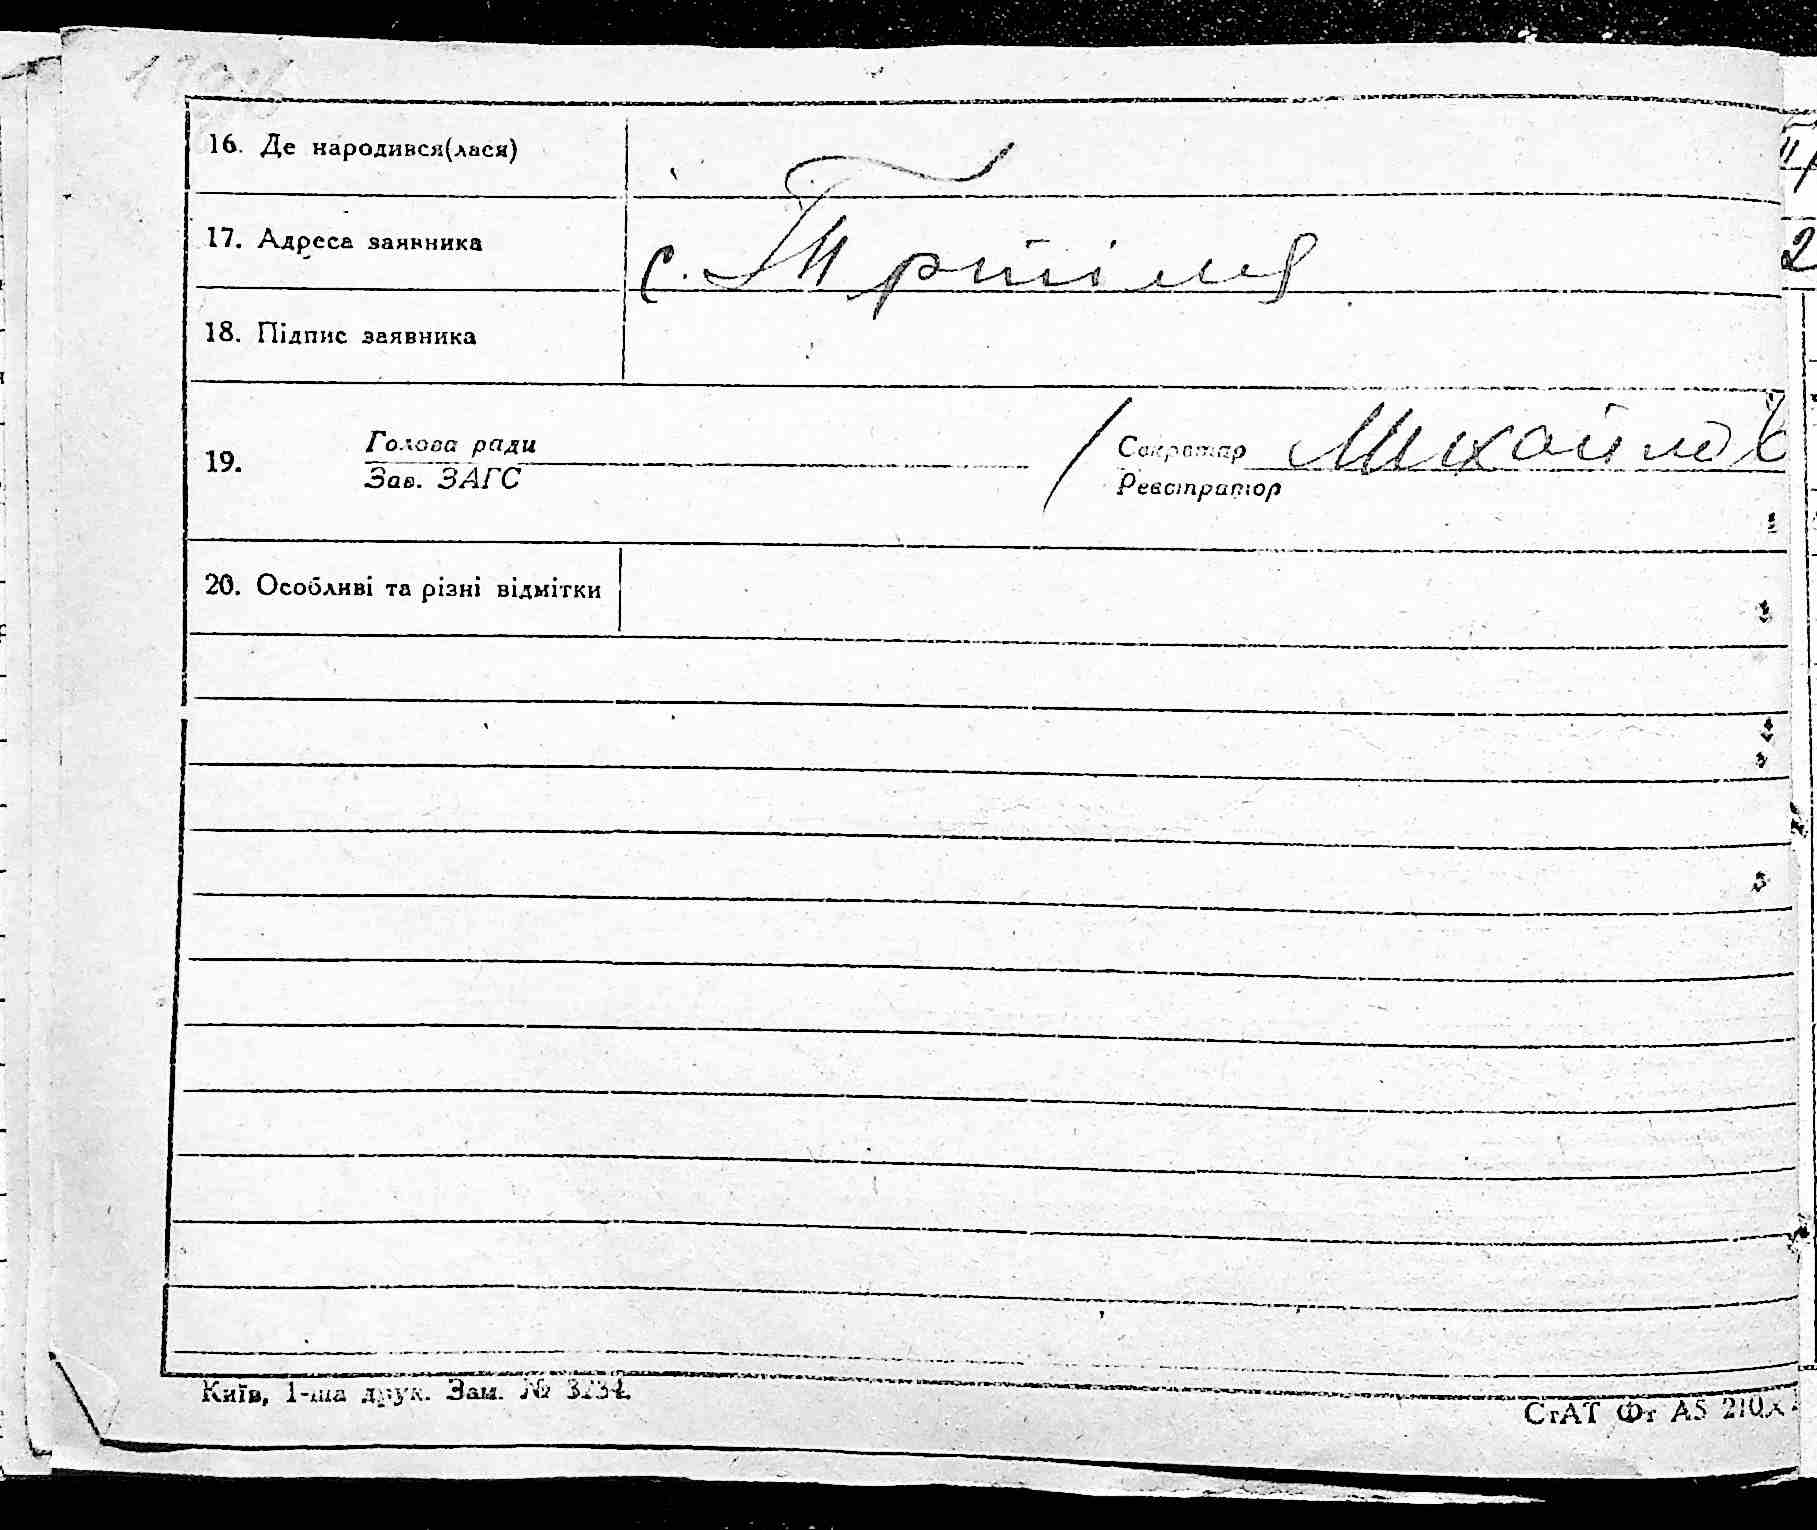 16. Де народився(лася)
17. Адреса заявника с. Трипілля
18. Підпис заявника
19. Голова ради / Секретар Михайлов
Зав. ЗАГС Реєстратор
20. Особливі та різні відмітки
Київ, 1-ша друк. Зам. № 3234.
СтАТ Фт А5 210х